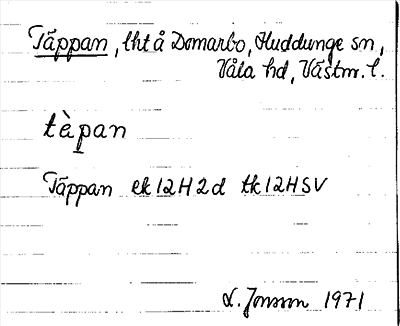 Täppan, lht å Domarbo, Huddunge sn,
Våla hd, Västm. l.
tὲpan
Täppan ek 12H2d tk 12HSV
L. Jonsson 1971